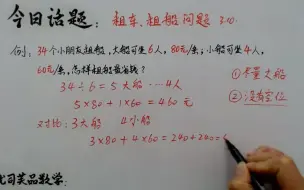 今日话题：租车、租船问题 3.10.
例：34个小朋友租船，大船可坐6人，80元/条，小船可坐4人，
60元/条，怎样租船最省钱？
34÷6=5大船……4人
①尽量大船
5×80+1×60=460元
②没有空位
对比：3大船 4小船
3×80+4×60=240+240=
英品数学：